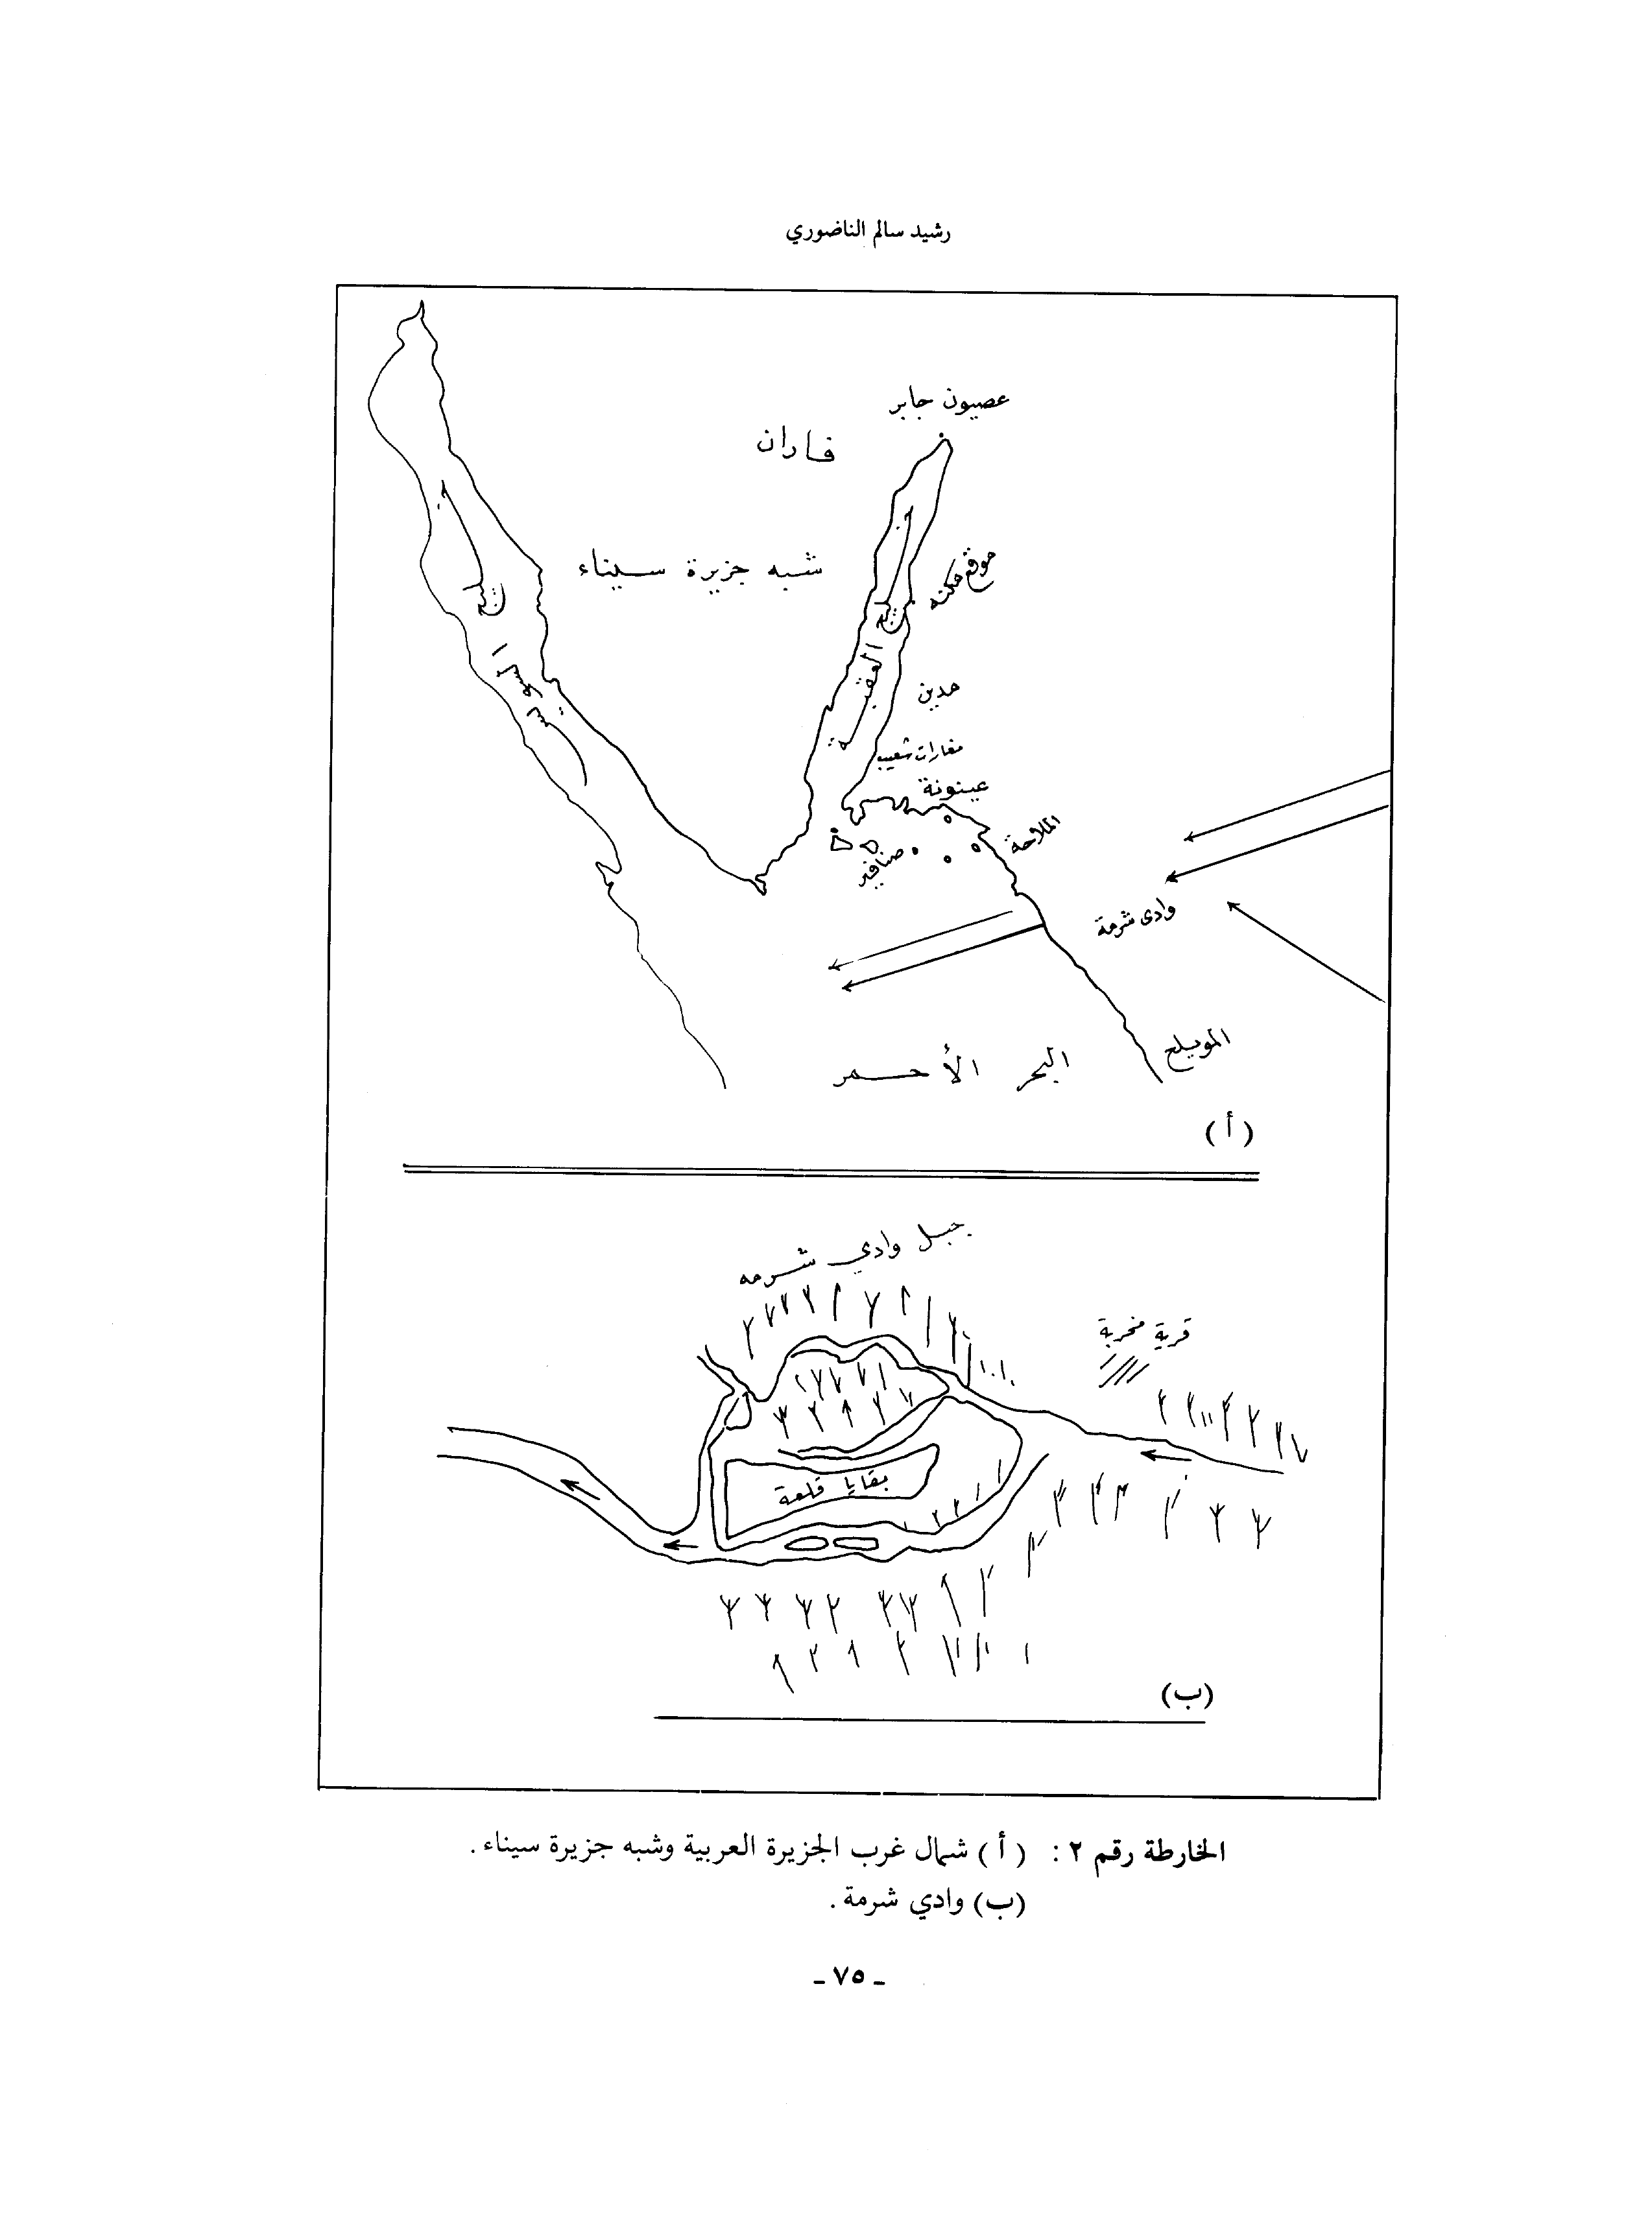 رشيد سالم الناضوري
عصيون جابر
فاران
شبه جزيرة سيناء
خليج السويس
خليج العقبة
موقع
مدين
مغارات شعيب
عينونة
الملاحة
صنافير
وادى شرمة
المويلح
البحر الأحمر
(أ)
جبل وادي شرمه
قرية مخربة
بقايا قلعة
(ب)
الخارطة رقم ٢ : (أ) شمال غرب الجزيرة العربية وشبه جزيرة سيناء .
(ب) وادي شرمة .
ـ ٧٥ ـ